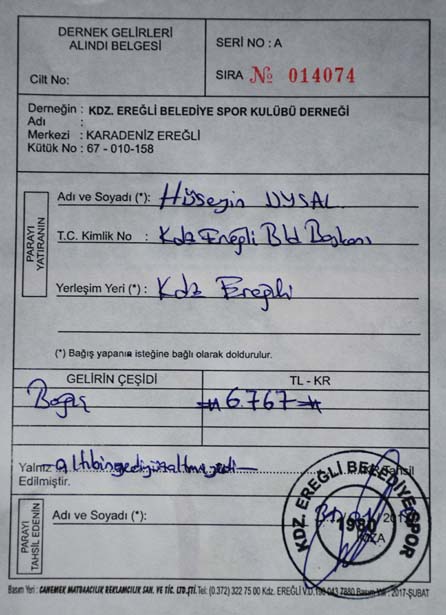 DERNEK GELİRLERİ
ALINDI BELGESİ
Cilt No:
SERİ NO : A
SIRA № 014074
Derneğin : KDZ. EREĞLİ BELEDİYE SPOR KULÜBÜ DERNEĞİ
Adı :
Merkezi : KARADENİZ EREĞLİ
Kütük No : 67 - 010-158
PARAYI YATIRANIN
Adı ve Soyadı (*): Hüseyin UYSAL
T.C. Kimlik No : Kdz Ereğli Bld Başkanı
Yerleşim Yeri (*) : Kdz Ereğli
(*) Bağış yapanın isteğine bağlı olarak doldurulur.
GELİRİN ÇEŞİDİ TL - KR
Bağış 6.767
Yalnız altıbinyediyüzaltmışyedi Tahsil
Edilmiştir.
PARAYI TAHSİL EDENİN
Adı ve Soyadı (*):
KDZ. EREĞLİ BELEDİYE SPOR
1980
İMZA
Basım Yeri : CANEMEK MATBAACILIK REKLAMCILIK SAN. VE TİC. LTD.ŞTİ. Tel: (0.372) 322 75 00 Kdz. EREĞLİ V.D. 043 7880 Basım Yılı : 2017-ŞUBAT